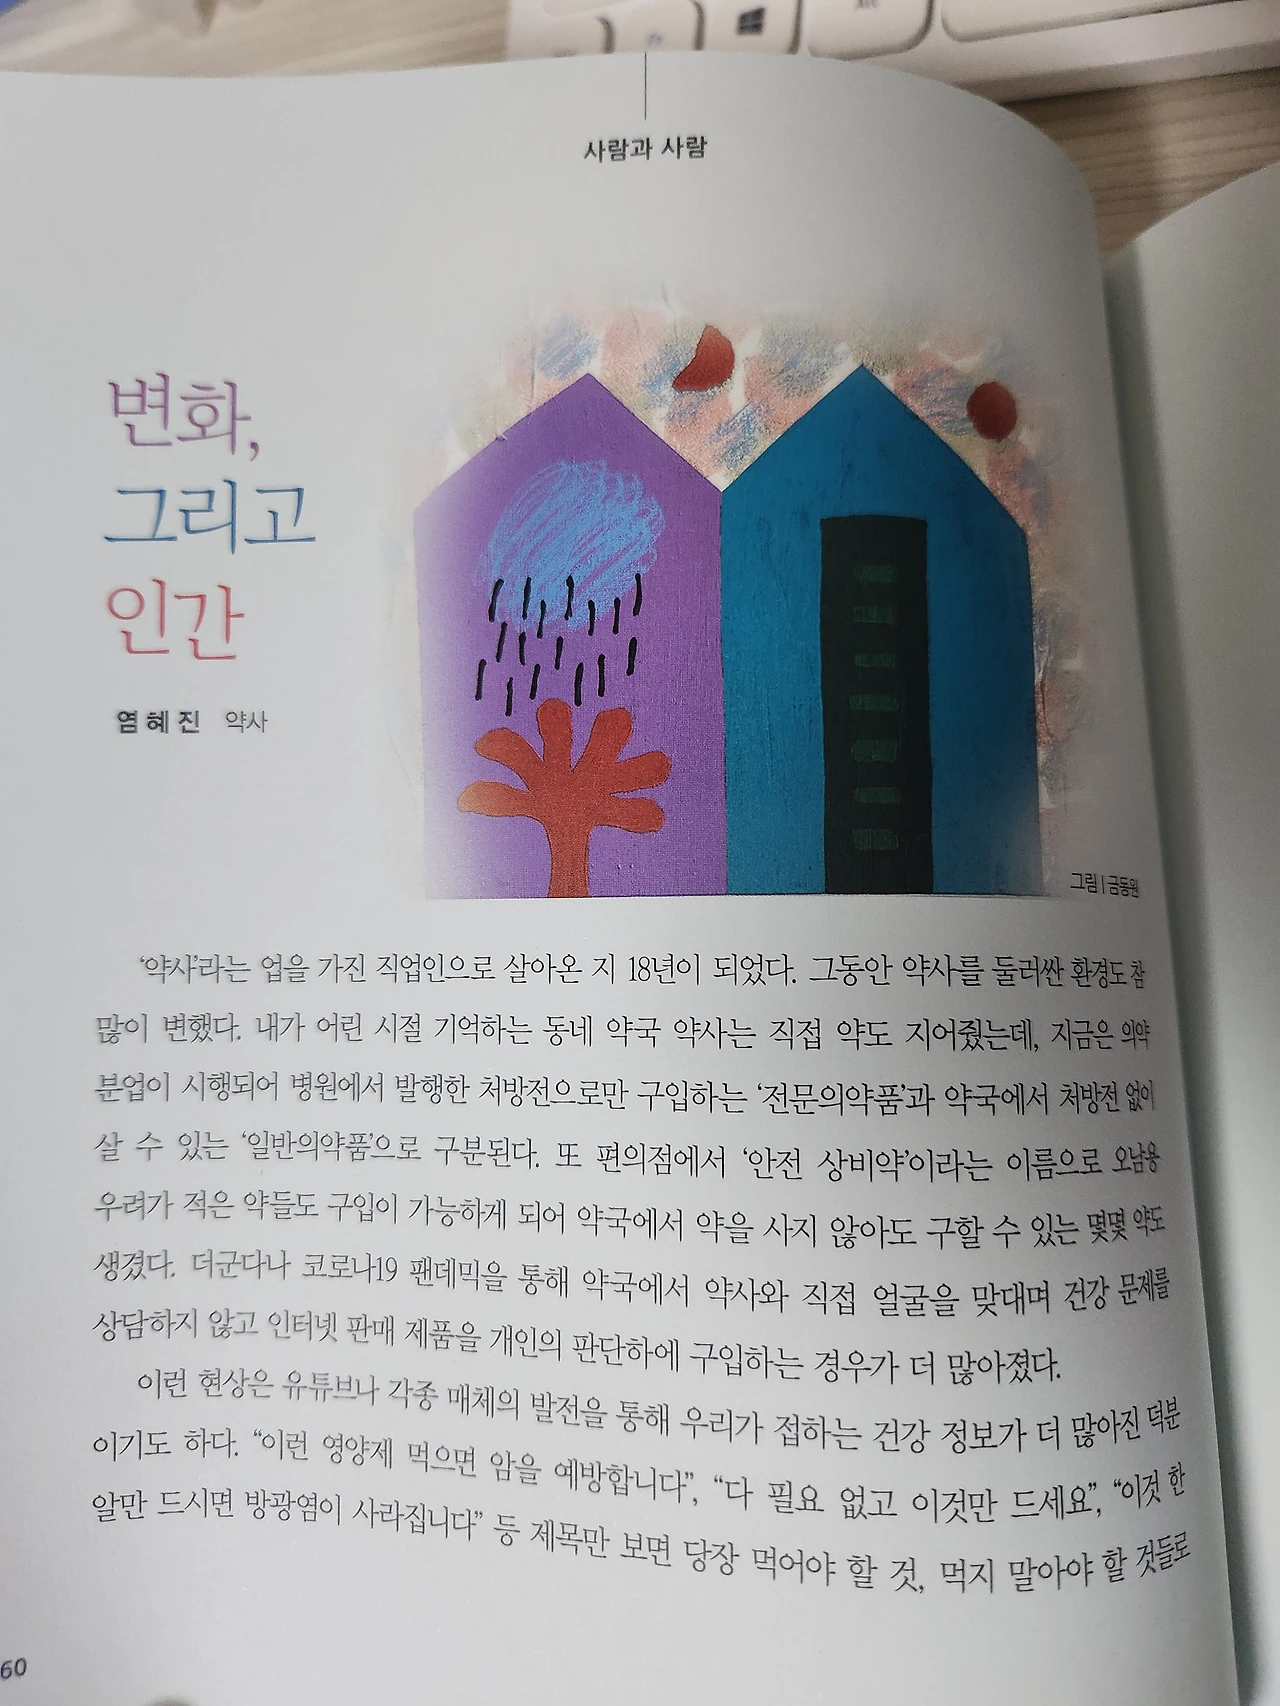 사람과 사람
변화,
그리고
인간
염혜진 약사
그림 | 금동원
‘약사’라는 업을 가진 직업인으로 살아온 지 18년이 되었다. 그동안 약사를 둘러싼 환경도 참
많이 변했다. 내가 어린 시절 기억하는 동네 약국 약사는 직접 약도 지어줬는데, 지금은 의약
분업이 시행되어 병원에서 발행한 처방전으로만 구입하는 ‘전문의약품’과 약국에서 처방전 없이
살 수 있는 ‘일반의약품’으로 구분된다. 또 편의점에서 ‘안전 상비약’이라는 이름으로 오남용
우려가 적은 약들도 구입이 가능하게 되어 약국에서 약을 사지 않아도 구할 수 있는 몇몇 약도
생겼다. 더군다나 코로나19 팬데믹을 통해 약국에서 약사와 직접 얼굴을 맞대며 건강 문제를
상담하지 않고 인터넷 판매 제품을 개인의 판단하에 구입하는 경우가 더 많아졌다.
이런 현상은 유튜브나 각종 매체의 발전을 통해 우리가 접하는 건강 정보가 더 많아진 덕분
이기도 하다. “이런 영양제 먹으면 암을 예방합니다”, “다 필요 없고 이것만 드세요”, “이것 한
알만 드시면 방광염이 사라집니다” 등 제목만 보면 당장 먹어야 할 것, 먹지 말아야 할 것들로
60